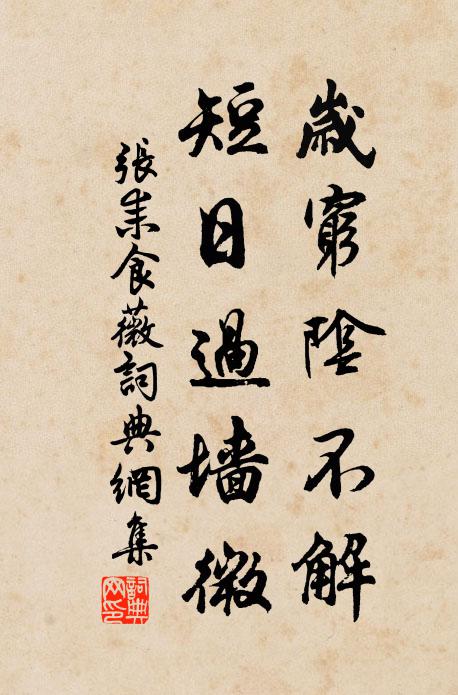 歲窮陰不解
短日過墻微
張耒食薇詞典網集
詞典網印